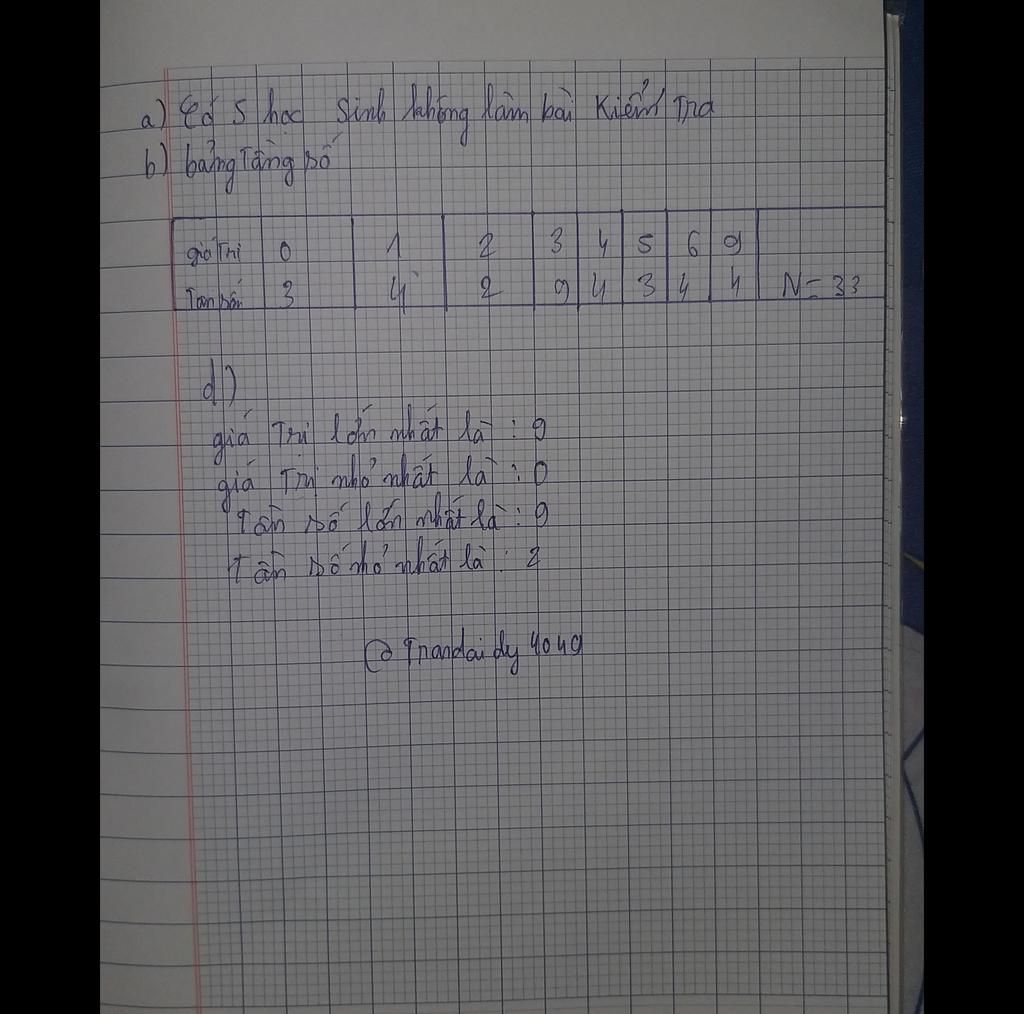 a) Có 5 học sinh không làm bài Kiểm Tra
b) bảng Tầng số
giá Trị 0 1 2 3 4 5 6 9
Tần số 3 4 2 9 4 3 4 4 N = 33
d)
giá Trị lớn nhất là : 9
giá Trị nhỏ nhất là : 0
Tần số lớn nhất là : 9
Tần số nhỏ nhất là : 2
@ Trandaidy